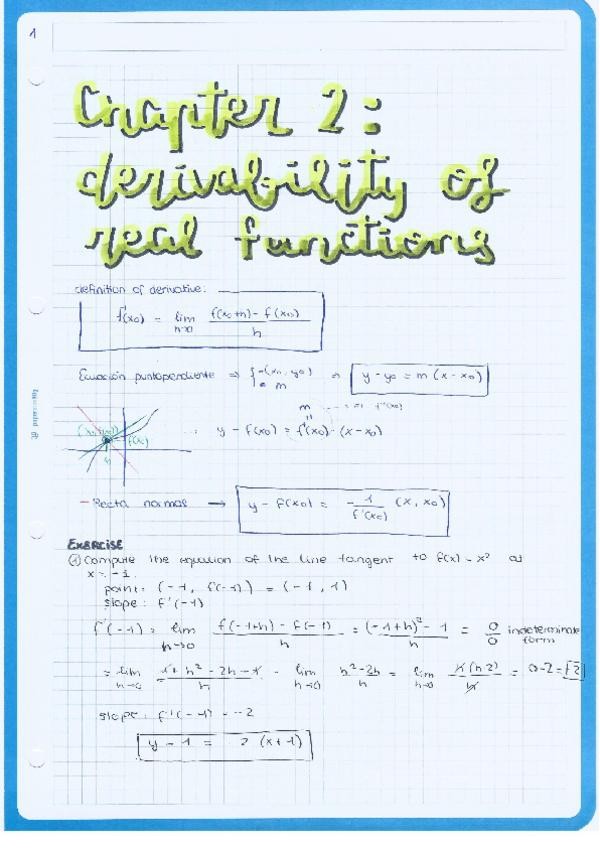 1
Chapter 2:
derivability of
real functions
definition of derivative:
f'(x0) = lim h→0 f(x0+h) - f(x0) / h
Ecuación puntopendiente ⇒ { -(x0, y0) • m ⇒ y - y0 = m (x - x0)
m = f'(x0)
y - f(x0) = f'(x0) · (x - x0)
f(x0)
- Recta normal → y - f(x0) = -1/f'(x0) (x, x0)
EXERCISE
① Compute the equation of the line tangent to f(x) = x² at
x = -1.
point: (-1, f(-1)) = (-1, 1)
slope: f'(-1)
f'(-1) = lim h→0 f(-1+h) - f(-1) / h = (-1+h)² - 1 / h = 0/0 indeterminate form
= lim h→0 1 + h² - 2h - 1 / h = lim h→0 h² - 2h / h = lim h→0 h (h-2) / h = 0-2 = -2
slope: f'(-1) = -2
y - 1 = -2 (x+1)